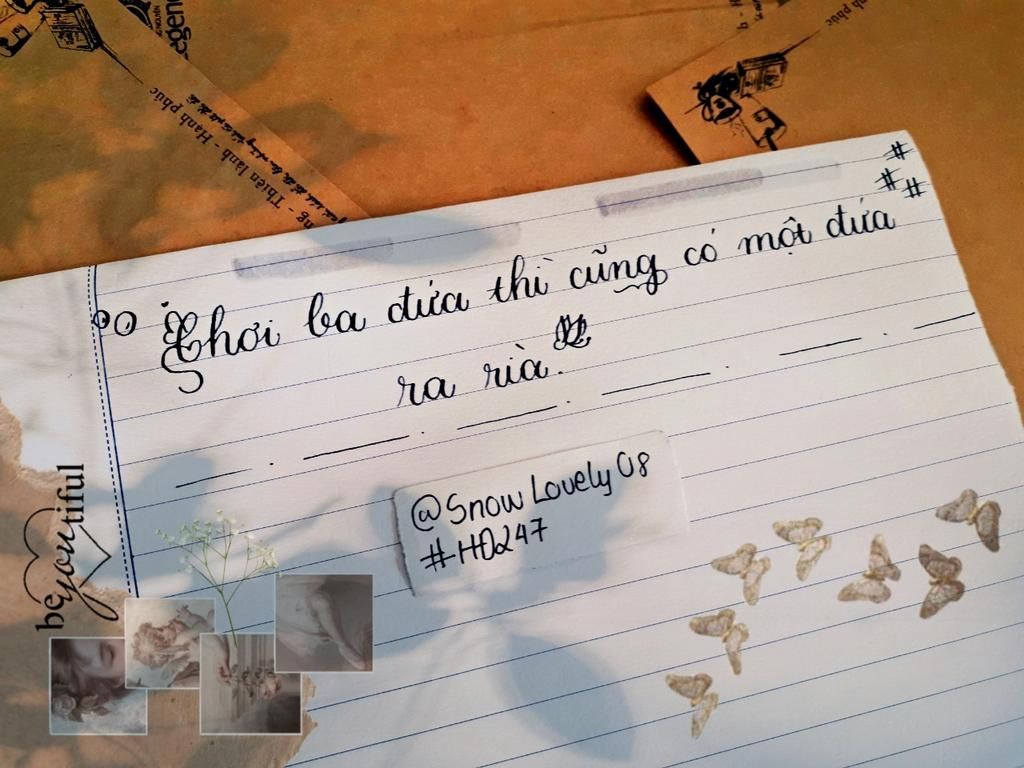 egen
Thiện lành - Hạnh phúc
Chơi ba đứa thì cũng có một đứa
ra rìa.
@Snow Lovely 08
#HD247
beyoutiful